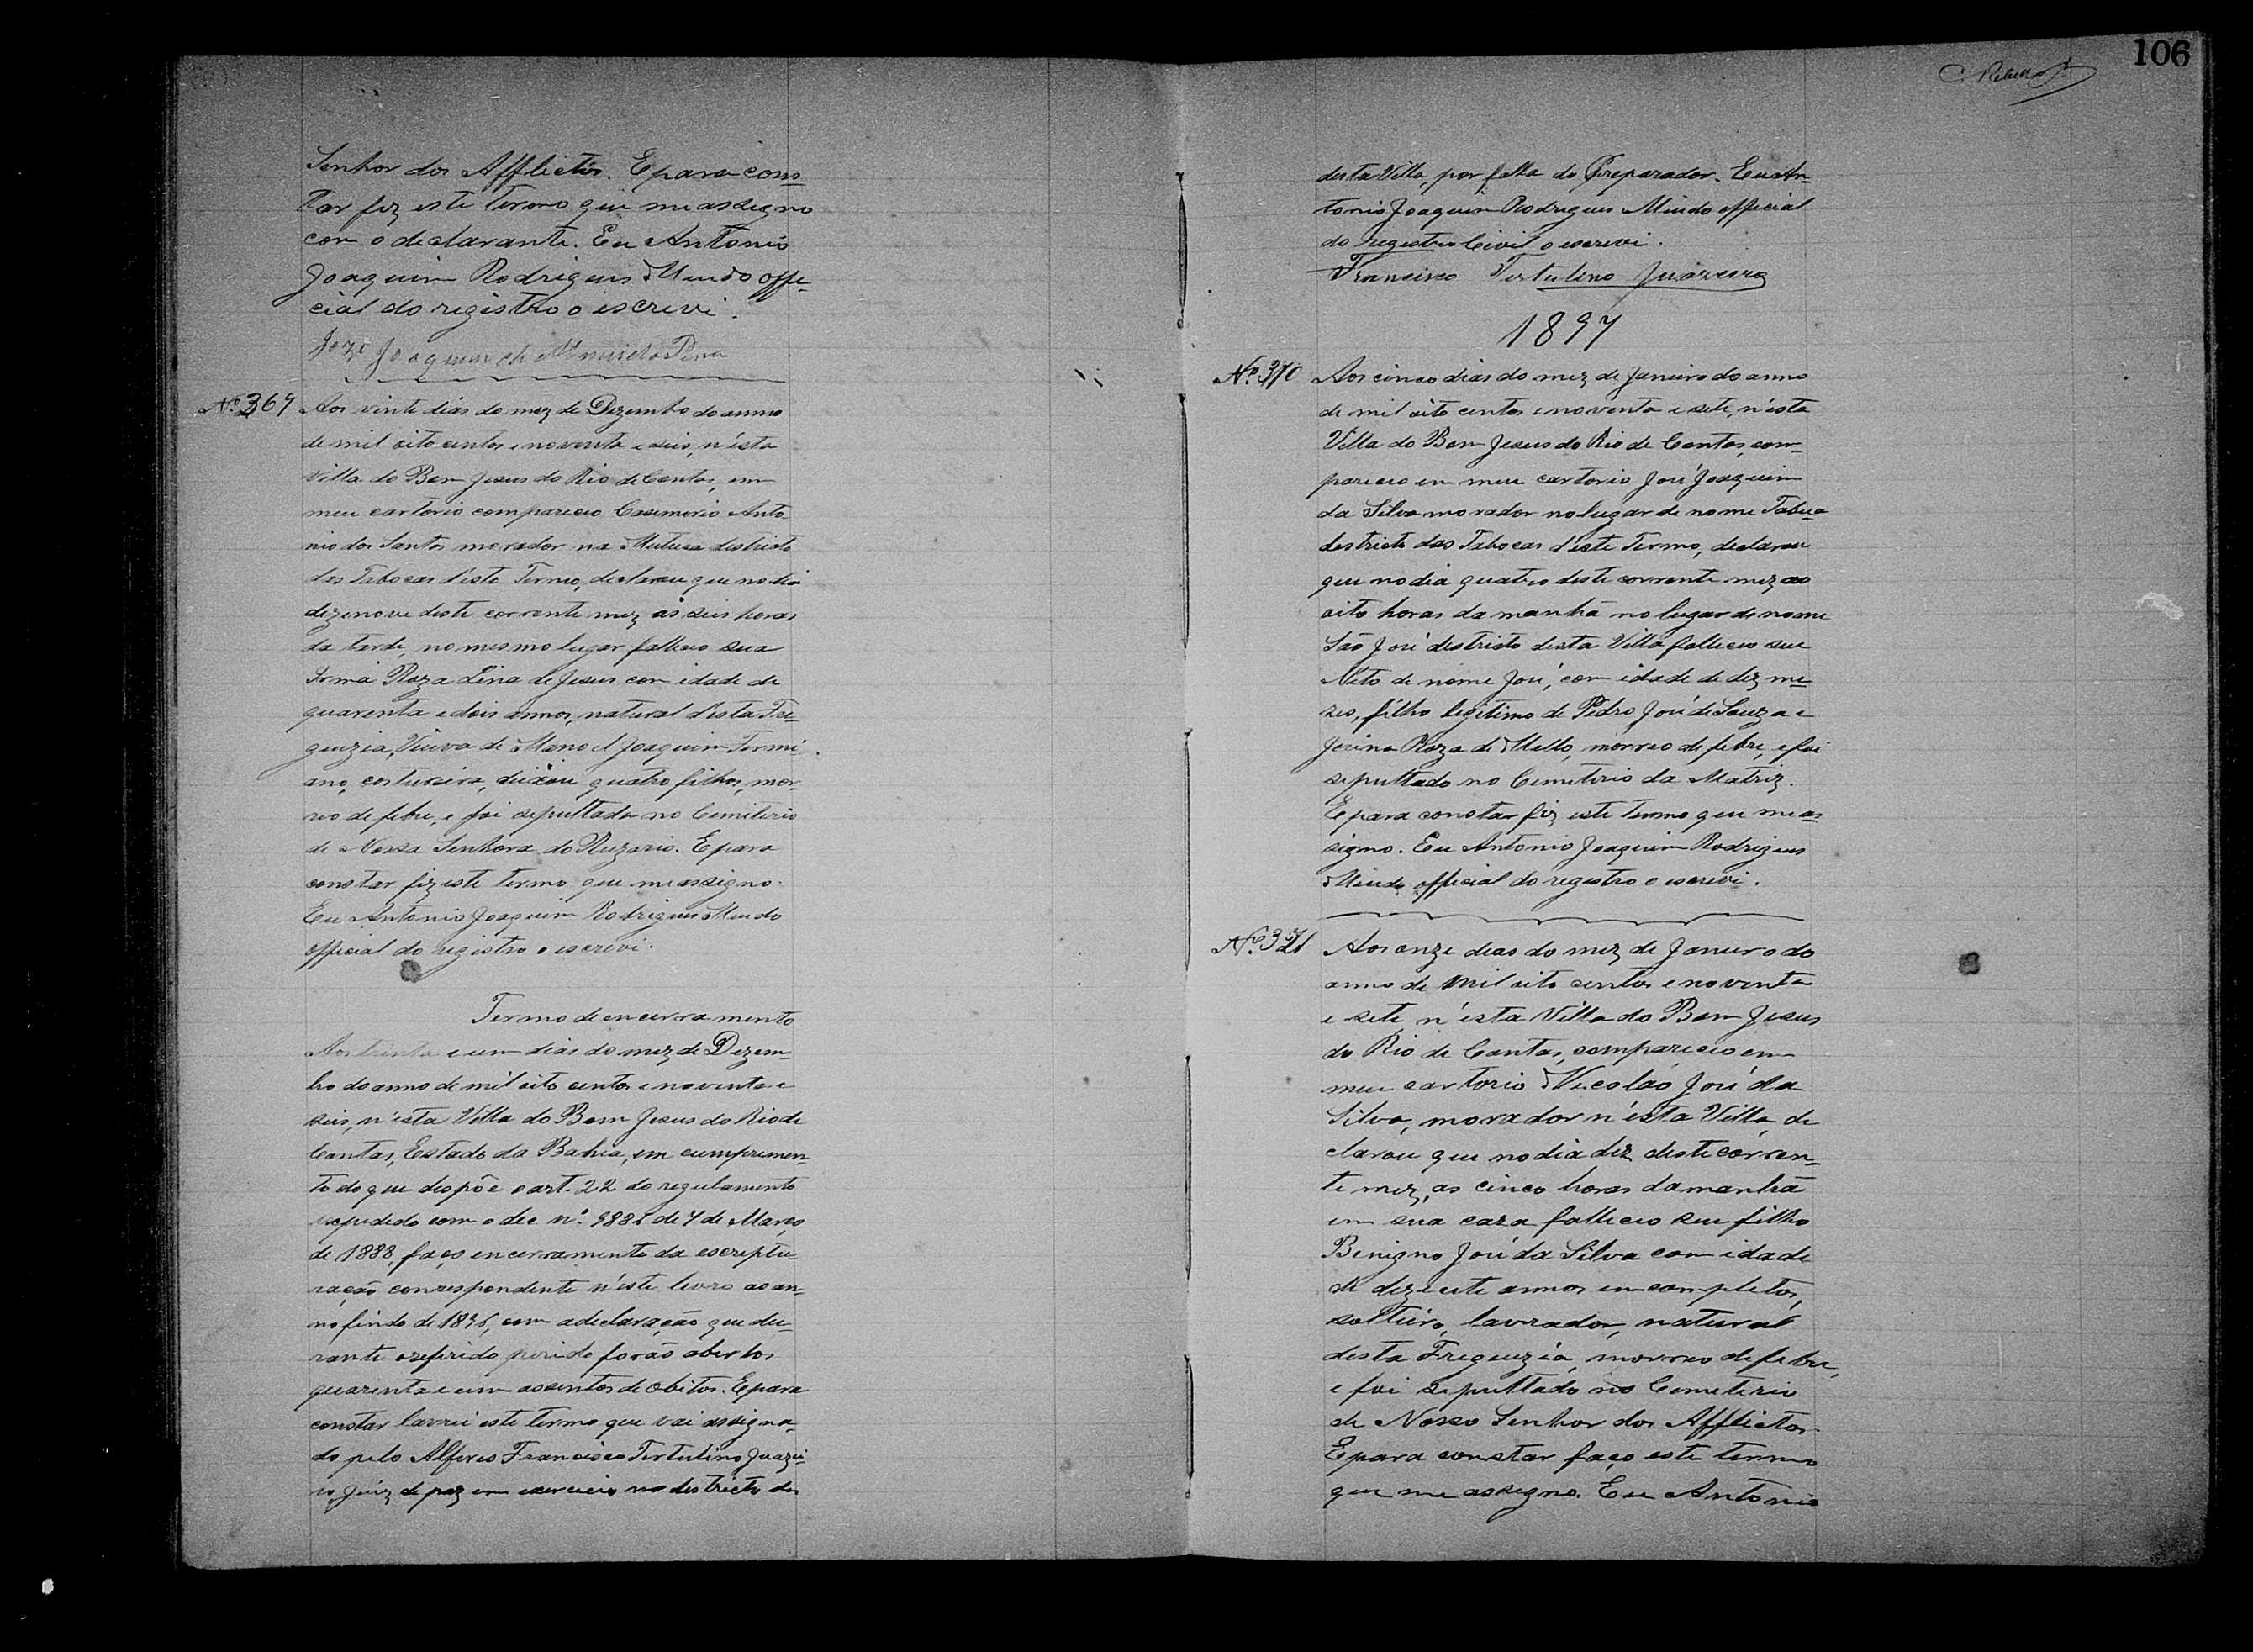 Senhor dos Afflictos. E para cons-
tar fiz este termo que me assigno
com o declarante. Eu Antonio
Joaquim Rodrigues Mendo offi-
cial do registro o escrevi.
Joze Joaquim de
Nº 369
Aos vinte dias do mez de Dezembro do anno
de mil oito centos e noventa e seis, n'esta
Villa do Bom Jesus do Rio de Contas, em
meu cartorio compareceo Casimirio Anto
nio dos Santos morador na Mutuca districto
das Tabocas d'este Termo, declarou que no dia
dezenove deste corrente mez as seis horas
da tarde, no mesmo lugar falleceo sua
Irmã Roza Lina de Jesus com idade de
quarenta e dois annos, natural d'esta Fre-
guezia, Viuva de Manoel Joaquim Firmi
ano, costureira, deixou quatro filhos, mor-
reo de febre, e foi sepultada no Cemiterio
de Nossa Senhora do Ruzario. E para
constar fiz este termo que me assigno.
Eu Antonio Joaquim Rodrigues Mendo
official do registro o escrevi.
Termo de encerramento
Aos trinta e um dias do mez de Dezem-
bro do anno de mil oito centos e noventa e
seis, n'esta Villa do Bom Jesus do Rio de
Contas, Estado da Bahia, em cumprimen-
to do que despõe o art. 22 do regulamento
expedido com o dec nº. 9886 de 7 de Março
de 1888, faço encerramento da escriptu-
ração conrespondente n'este livro ao an-
no findo de 1896, com a declaração que du-
rante o referido periodo forão abertos
quarenta e um assentos de obitos. E para
constar lavrei este termo que vai assigna-
do pelo Alferes Francisco Tertulino
Juiz de paz em exercicio no districto
106
desta Villa, por falta do Preparador. Eu An-
tonio Joaquim Rodrigues Mendo official
do registro Civil o escrevi.
Francisco Tertulino
1897
Nº 370
Aos cinco dias do mez de Janeiro do anno
de mil oito centos e noventa e sete, n'esta
Villa do Bom Jesus do Rio de Contas, com-
pareceo em meu cartorio José Joaquim
da Silva morador no lugar de nome Tabua
destricto das Tabocas d'este Termo, declarou
que no dia quatro deste corrente mez as
oito horas da manhã no lugar de nome
São José destricto desta Villa falleceo seu
Neto de nome José, com idade de dez me-
zes, filho legitimo de Pedro José de Souza e
Jovina Roza de Mello, morreo de febre, e foi
sepultado no Cemiterio da Matriz.
E para constar fiz este termo que me as
signo. Eu Antonio Joaquim Rodrigues
Mendo official do registro o escrevi.
Nº 371
Aos onze dias do mez de Janeiro do
anno de mil oito centos e noventa
e sete n'esta Villa do Bom Jesus
do Rio de Contas, compareceo em
meu cartorio Nicoláo José da
Silva, morador n'esta Villa, de
clarou que no dia dez deste corren-
te mez, as cinco horas da manhã
em sua caza falleceo seu filho
Benigno José da Silva com idade
de dezesete annos incompletos,
solteiro, lavrador, natural
desta Freguezia, morreo de febre,
e foi sepultado no Cemeterio
de Nosso Senhor dos Afflictos.
E para constar faço este termo
que me assigno. Eu Antonio